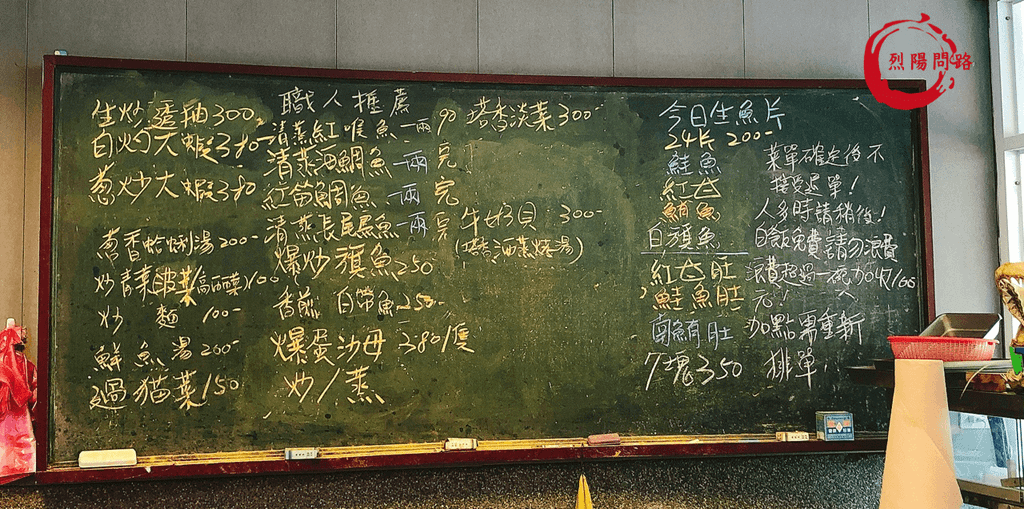 烈陽問路
生炒透抽300
白灼大蝦380
蔥炒大蝦380
蔥香蛤蜊湯200-
炒青菜 菠菜 高麗菜 100
炒 麵 100-
鮮魚湯200-
過猫菜150
職人推薦
清蒸紅喉魚一兩90
清蒸海鯛魚一兩 完
紅笛鯛魚一兩 完
清蒸長尾鳥魚一兩 完
爆炒旗魚250
香煎白帶魚250-
爆蛋沙母380/隻
炒/蒸
塔香淡菜300-
牛奶貝 300-
今日生魚片
24片 200-
鮭魚
紅甘
鮪魚
白旗魚
紅甘肚
鮭魚肚
鮪肚
7塊350
菜單確定後不
接受退單!
人多時請稍後!
白飯免費請勿浪費
浪費超過一碗加收100
元!
加點需重新
排單